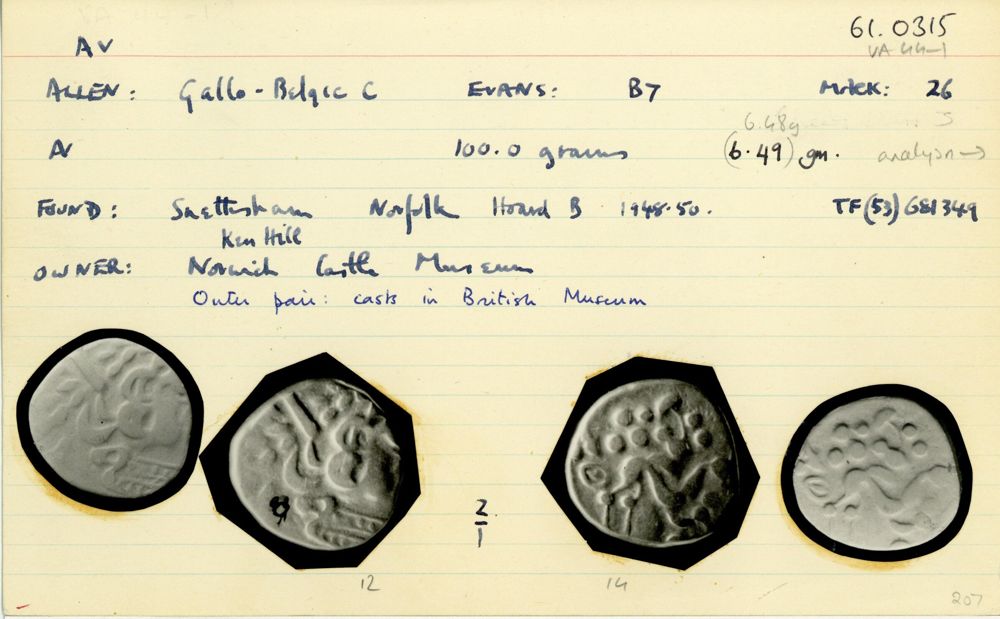 AV 61.0315
VA 44-1
ALLEN: Gallo-Belgic C EVANS: B7 Mack: 26
6.48g
Av 100.0 grains (6.49) gm. analysn →
FOUND: Snettisham Norfolk Hoard B 1948-50. TF(53)681349
Ken Hill
OWNER: Norwich Castle Museum
Outer pair: casts in British Museum
2
1
12 14
207